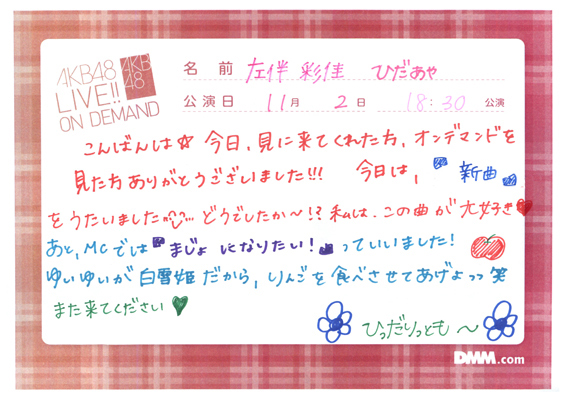 AKB48
LIVE!!
ON DEMAND
AKB
48
名 前 左伴 彩佳 ひだあや
公演日 11月 2日 18:30 公演
こんばんは☆ 今日、見に来てくれた方、オンデマンドを
見た方ありがとうございました!!! 今日は、新曲
をうたいました どうでしたか〜!? 私は、この曲が大好き♥
あと、MCでは まじょになりたい! っていいました!
ゆいゆいが白雪姫だから、りんごを食べさせてあげよっっ笑
また来てください♥
ひっだりっとも〜
DMM.com